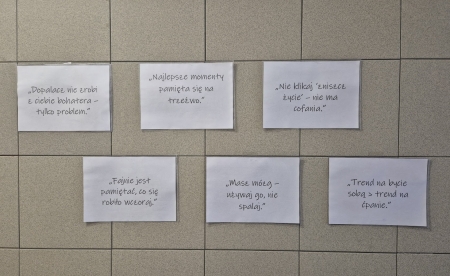 „Dopalacz nie zrobi
z ciebie bohatera –
tylko problem.”
„Najlepsze momenty
pamięta się na
trzeźwo.”
„Nie klikaj 'zniszcz
życie' – nie ma
cofania.”
„Fajnie jest
pamiętać, co się
robiło wczoraj.”
„Masz mózg –
używaj go, nie
spalaj.”
„Trend na bycie
sobą > trend na
ćpanie.”